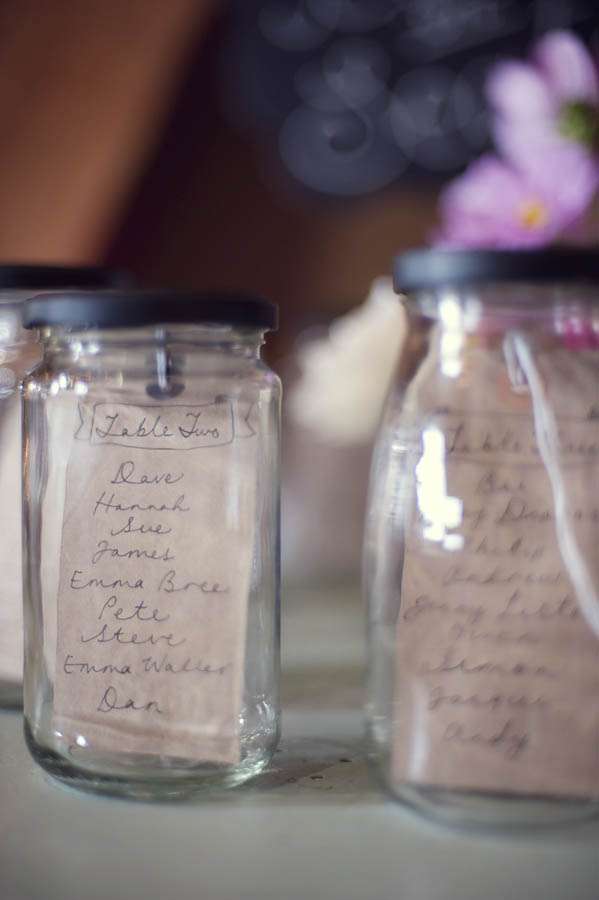 Table Two
Dave
Hannah
Sue
James
Emma Bree
Pete
Steve
Emma Waller
Dan
Table
Andrew
Simon
Jacqui
Andy